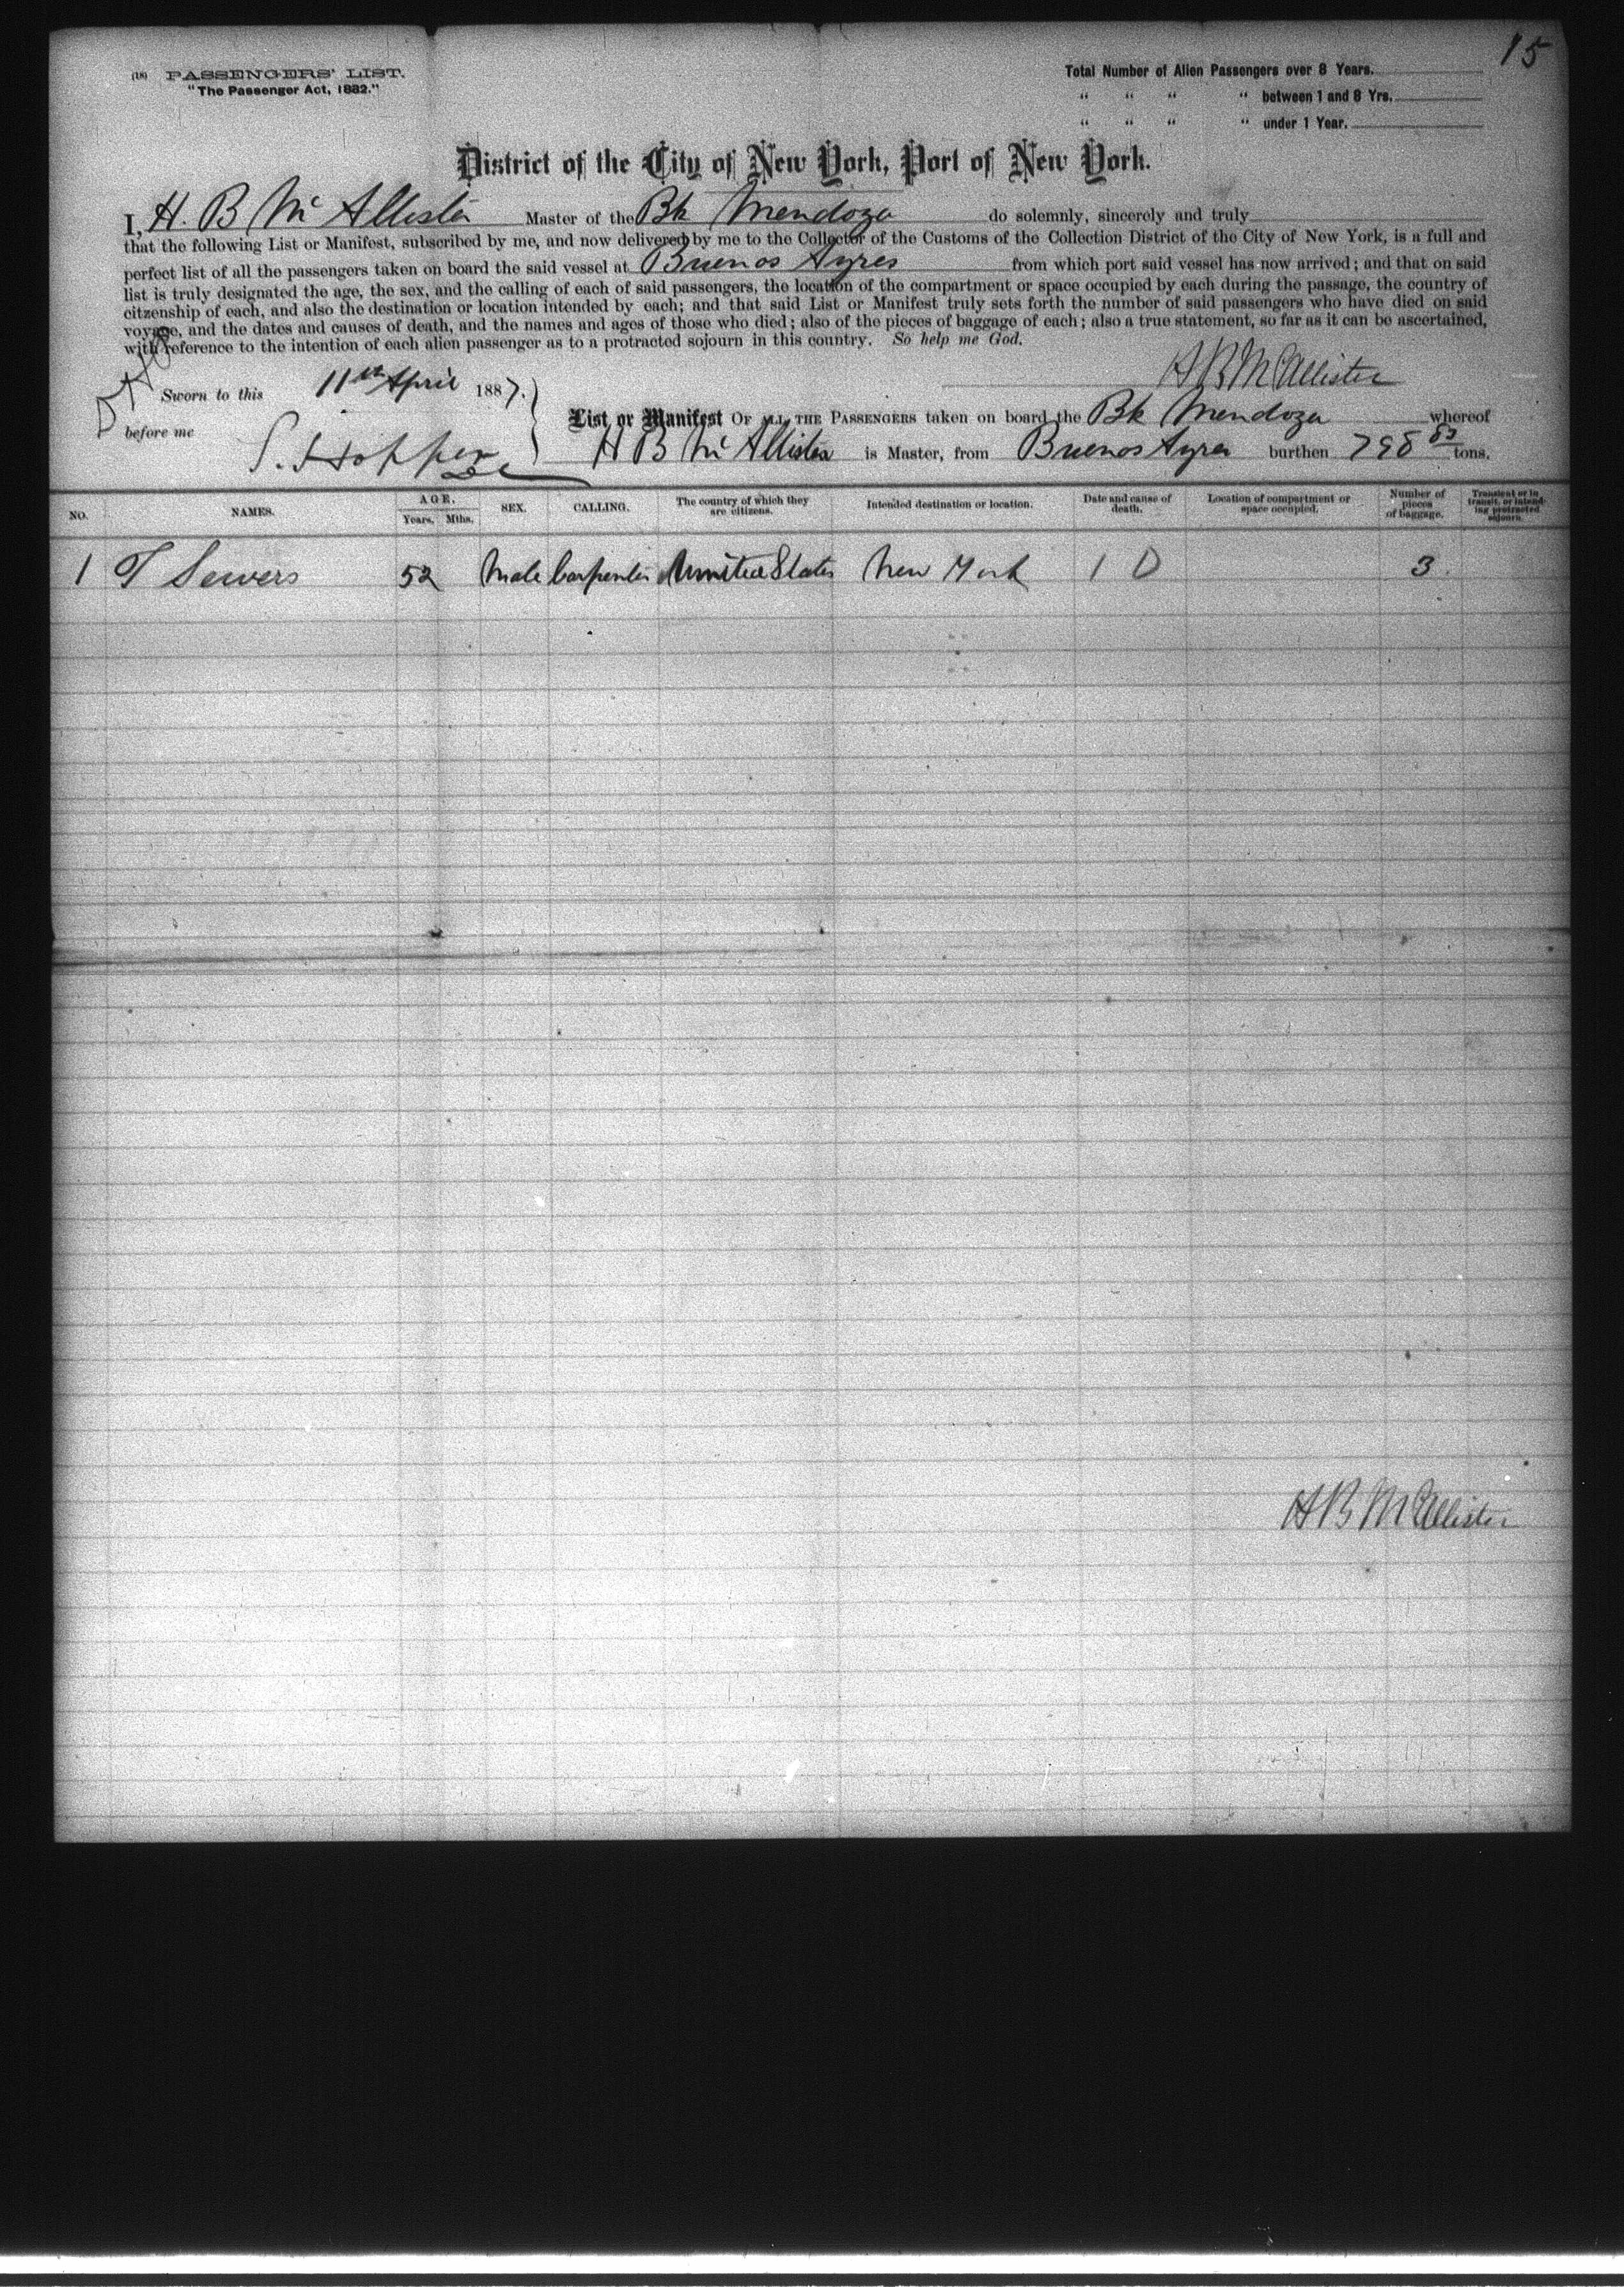 15
(18) PASSENGERS' LIST.
"The Passenger Act, 1882."
Total Number of Alien Passengers over 8 Years.
" " " " between 1 and 8 Yrs.
" " " " under 1 Year.
District of the City of New York, Port of New York.
I, H. B Mc Allister Master of the Bk Mendoza do solemnly, sincerely and truly
that the following List or Manifest, subscribed by me, and now delivered by me to the Collector of the Customs of the Collection District of the City of New York, is a full and
perfect list of all the passengers taken on board the said vessel at Buenos Ayres from which port said vessel has now arrived; and that on said
list is truly designated the age, the sex, and the calling of each of said passengers, the location of the compartment or space occupied by each during the passage, the country of
citzenship of each, and also the destination or location intended by each; and that said List or Manifest truly sets forth the number of said passengers who have died on said
voyage, and the dates and causes of death, and the names and ages of those who died; also of the pieces of baggage of each; also a true statement, so far as it can be ascertained,
with reference to the intention of each alien passenger as to a protracted sojourn in this country. So help me God.
H B McAllister
Sworn to this 11th April 1887.
before me
List or Manifest OF ALL THE PASSENGERS taken on board the Bk Mendoza whereof
H B Mc Allister is Master, from Buenos Ayres burthen 798 tons.
NO. NAMES. AGE. Years. Mths. SEX. CALLING. The country of which they are citizens. Intended destination or location. Date and cause of death. Location of compartment or space occupied. Number of pieces of baggage. Transient or in transit, or intending protracted sojourn.
1 T Sewers 52 Male Carpenter United States New York 1 D 3
H B McAllister